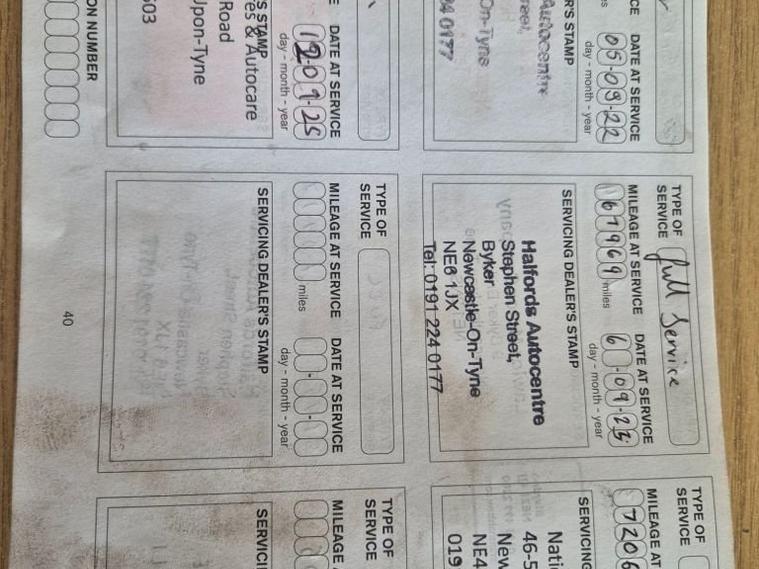 DATE AT SERVICE
05-09-22
day - month - year
STAMP
Autocentre
On-Tyne
0177
TYPE OF
SERVICE
full Service
MILEAGE AT SERVICE DATE AT SERVICE
67969 miles 6-09-23
day - month - year
SERVICING DEALER'S STAMP
Halfords Autocentre
Stephen Street,
Byker
Newcastle-On-Tyne
NE6 1JX
Tel: 0191 224 0177
TYPE OF
SERVICE
MILEAGE AT
7206
46-5
NE4
019
DATE AT SERVICE
12-09-25
day - month - year
STAMP
& Autocare
Road
Upon-Tyne
TYPE OF
SERVICE
MILEAGE AT SERVICE DATE AT SERVICE
miles
day - month - year
SERVICING DEALER'S STAMP
TYPE OF
SERVICE
MILEAGE
NUMBER
40